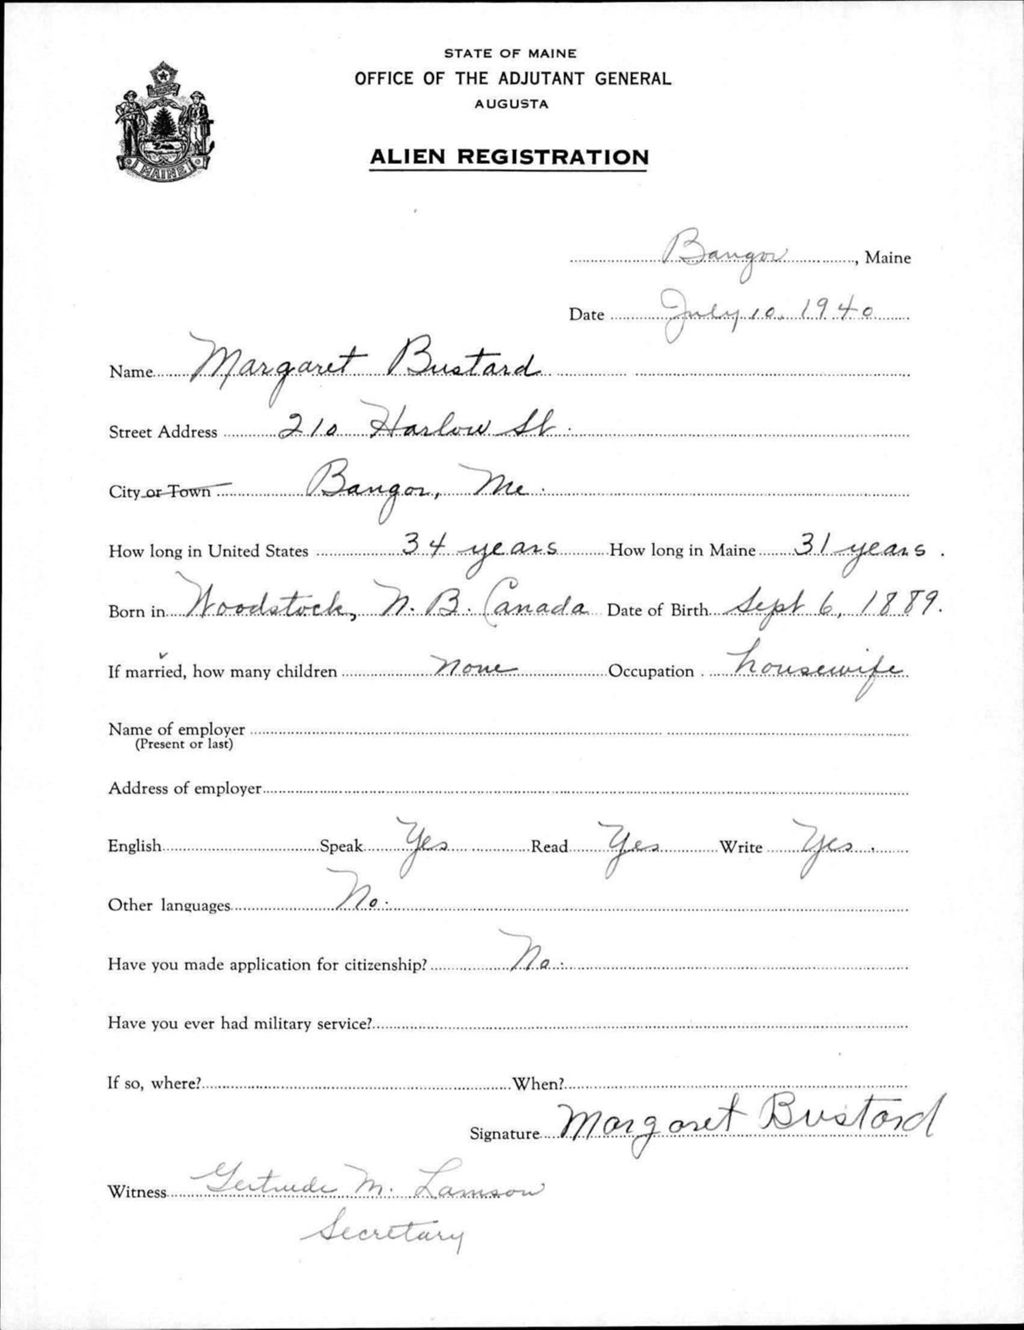 STATE OF MAINE
OFFICE OF THE ADJUTANT GENERAL
AUGUSTA
ALIEN REGISTRATION
MAINE
Bangor, Maine
Date July 10, 1940
Name Margaret Bustard
Street Address 210 Harlow St.
City or Town Bangor, Me.
How long in United States 34 years How long in Maine 31 years.
Born in Woodstock, N.B. Canada Date of Birth Sept 6, 1889.
If married, how many children None Occupation housewife
Name of employer
(Present or last)
Address of employer
English Speak Yes Read Yes Write Yes.
Other languages No.
Have you made application for citizenship? No.
Have you ever had military service?
If so, where? When?
Signature Margaret Bustard
Witness Gertrude M. Lamson
Secretary